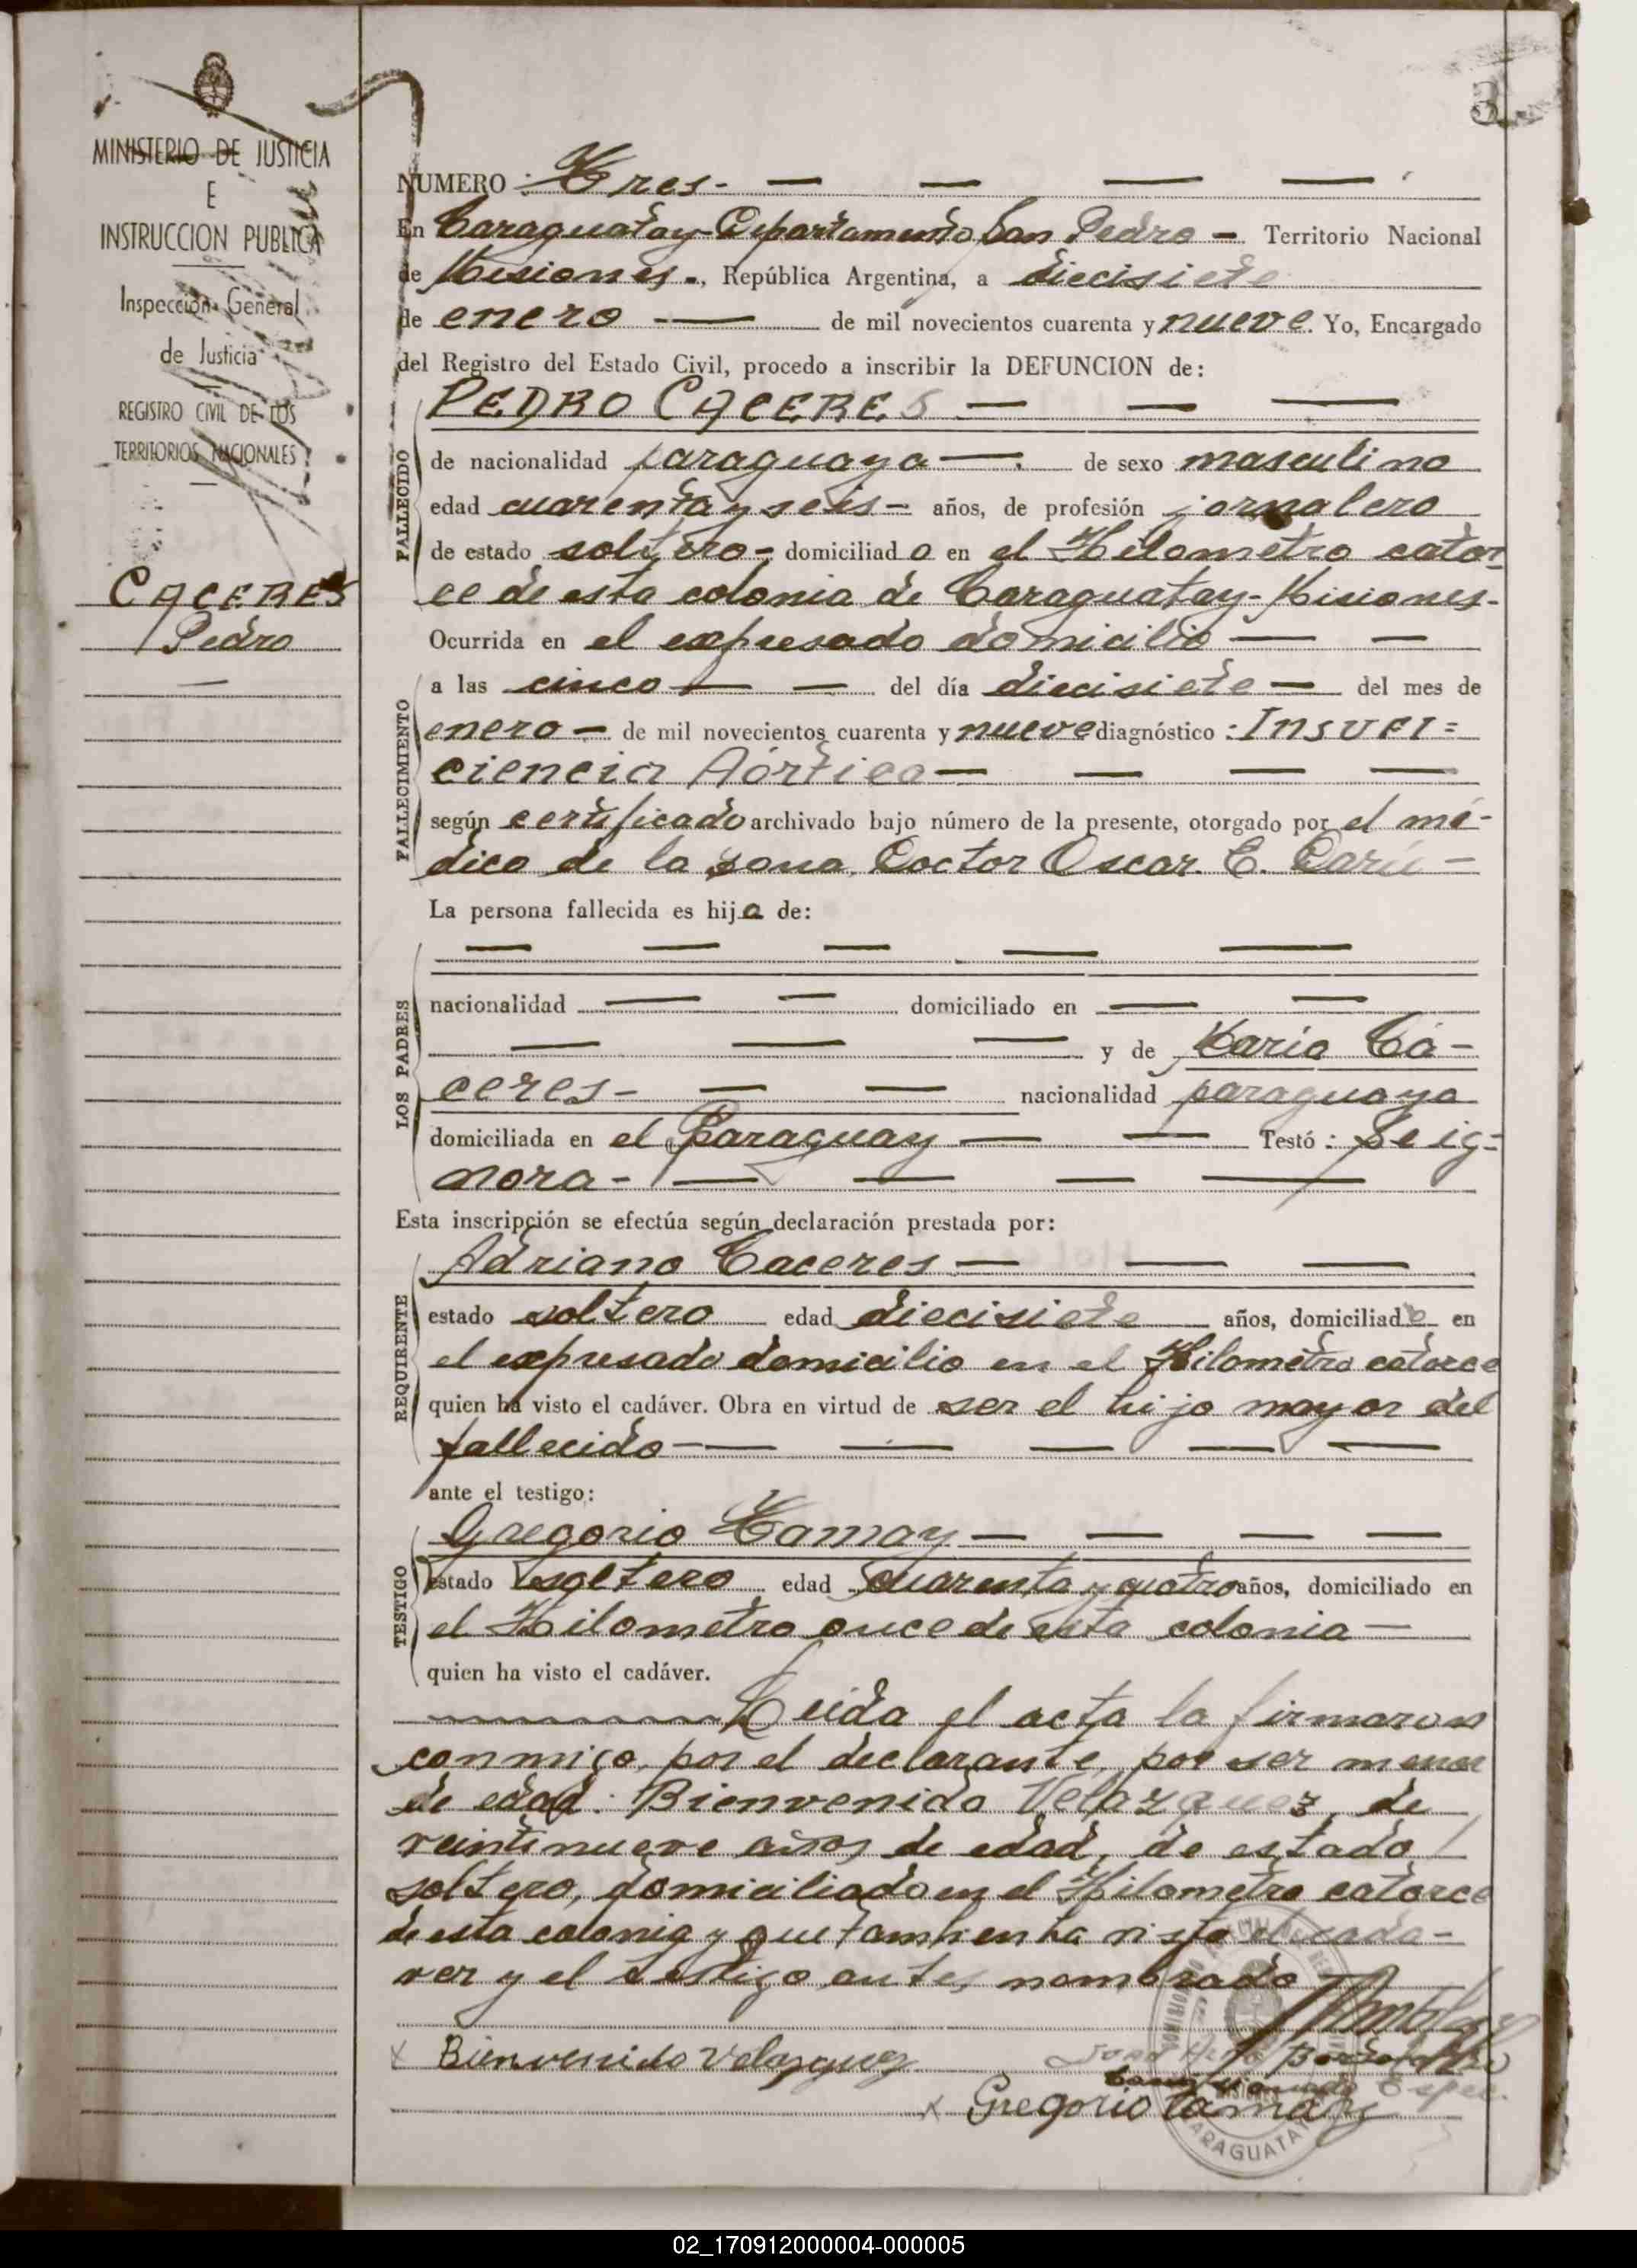 3
MINISTERIO DE JUSTICIA
E
INSTRUCCION PUBLICA
Inspección General
de Justicia
REGISTRO CIVIL DE LOS
TERRITORIOS NACIONALES
CACERES
Pedro
NUMERO: Tres-
En Caraguatay-Departamento San Pedro - Territorio Nacional
de Misiones-, República Argentina, a diecisiete
de enero de mil novecientos cuarenta y nueve. Yo, Encargado
del Registro del Estado Civil, procedo a inscribir la DEFUNCION de:
PEDRO CACERES
FALLECIDO
de nacionalidad paraguaya de sexo masculino
edad cuarenta y seis- años, de profesión jornalero
de estado soltero- domiciliado en el Kilometro cator-
ce de esta colonia de Caraguatay-Misiones-
Ocurrida en el expresado domicilio
FALLECIMIENTO
a las cinco del día diecisiete del mes de
enero- de mil novecientos cuarenta y nueve diagnóstico: INSUFI=
ciencia Aórtica
según certificado archivado bajo número de la presente, otorgado por el mé-
dico de la zona, Doctor Oscar. E. Darú-
La persona fallecida es hijo de:
LOS PADRES
nacionalidad domiciliado en
y de María Cá-
ceres- nacionalidad paraguaya
domiciliada en el Paraguay Testó: Se ig=
nora-
Esta inscripción se efectúa según declaración prestada por:
REQUIRENTE
Adriano Caceres
estado soltero edad diecisiete años, domiciliado en
el expresado domicilio en el Kilometro catorce
quien ha visto el cadáver. Obra en virtud de ser el hijo mayor del
fallecido
ante el testigo:
TESTIGO
Gregorio Tamay
estado soltero edad cuarenta y cuatro años, domiciliado en
el Kilometro once de esta colonia
quien ha visto el cadáver.
Leida el acta la firmaron
conmigo, por el declarante, por ser menor
de edad: Bienvenido Velazquez, de
veintinueve años de edad, de estado
soltero, domiciliado en el Kilometro catorce
de esta colonia y que tambien ha visto el cada-
ver y el testigo antes nombrado
x Bienvenido Velazquez
x Gregorio Tamay
CARAGUATAY
02_170912000004-000005